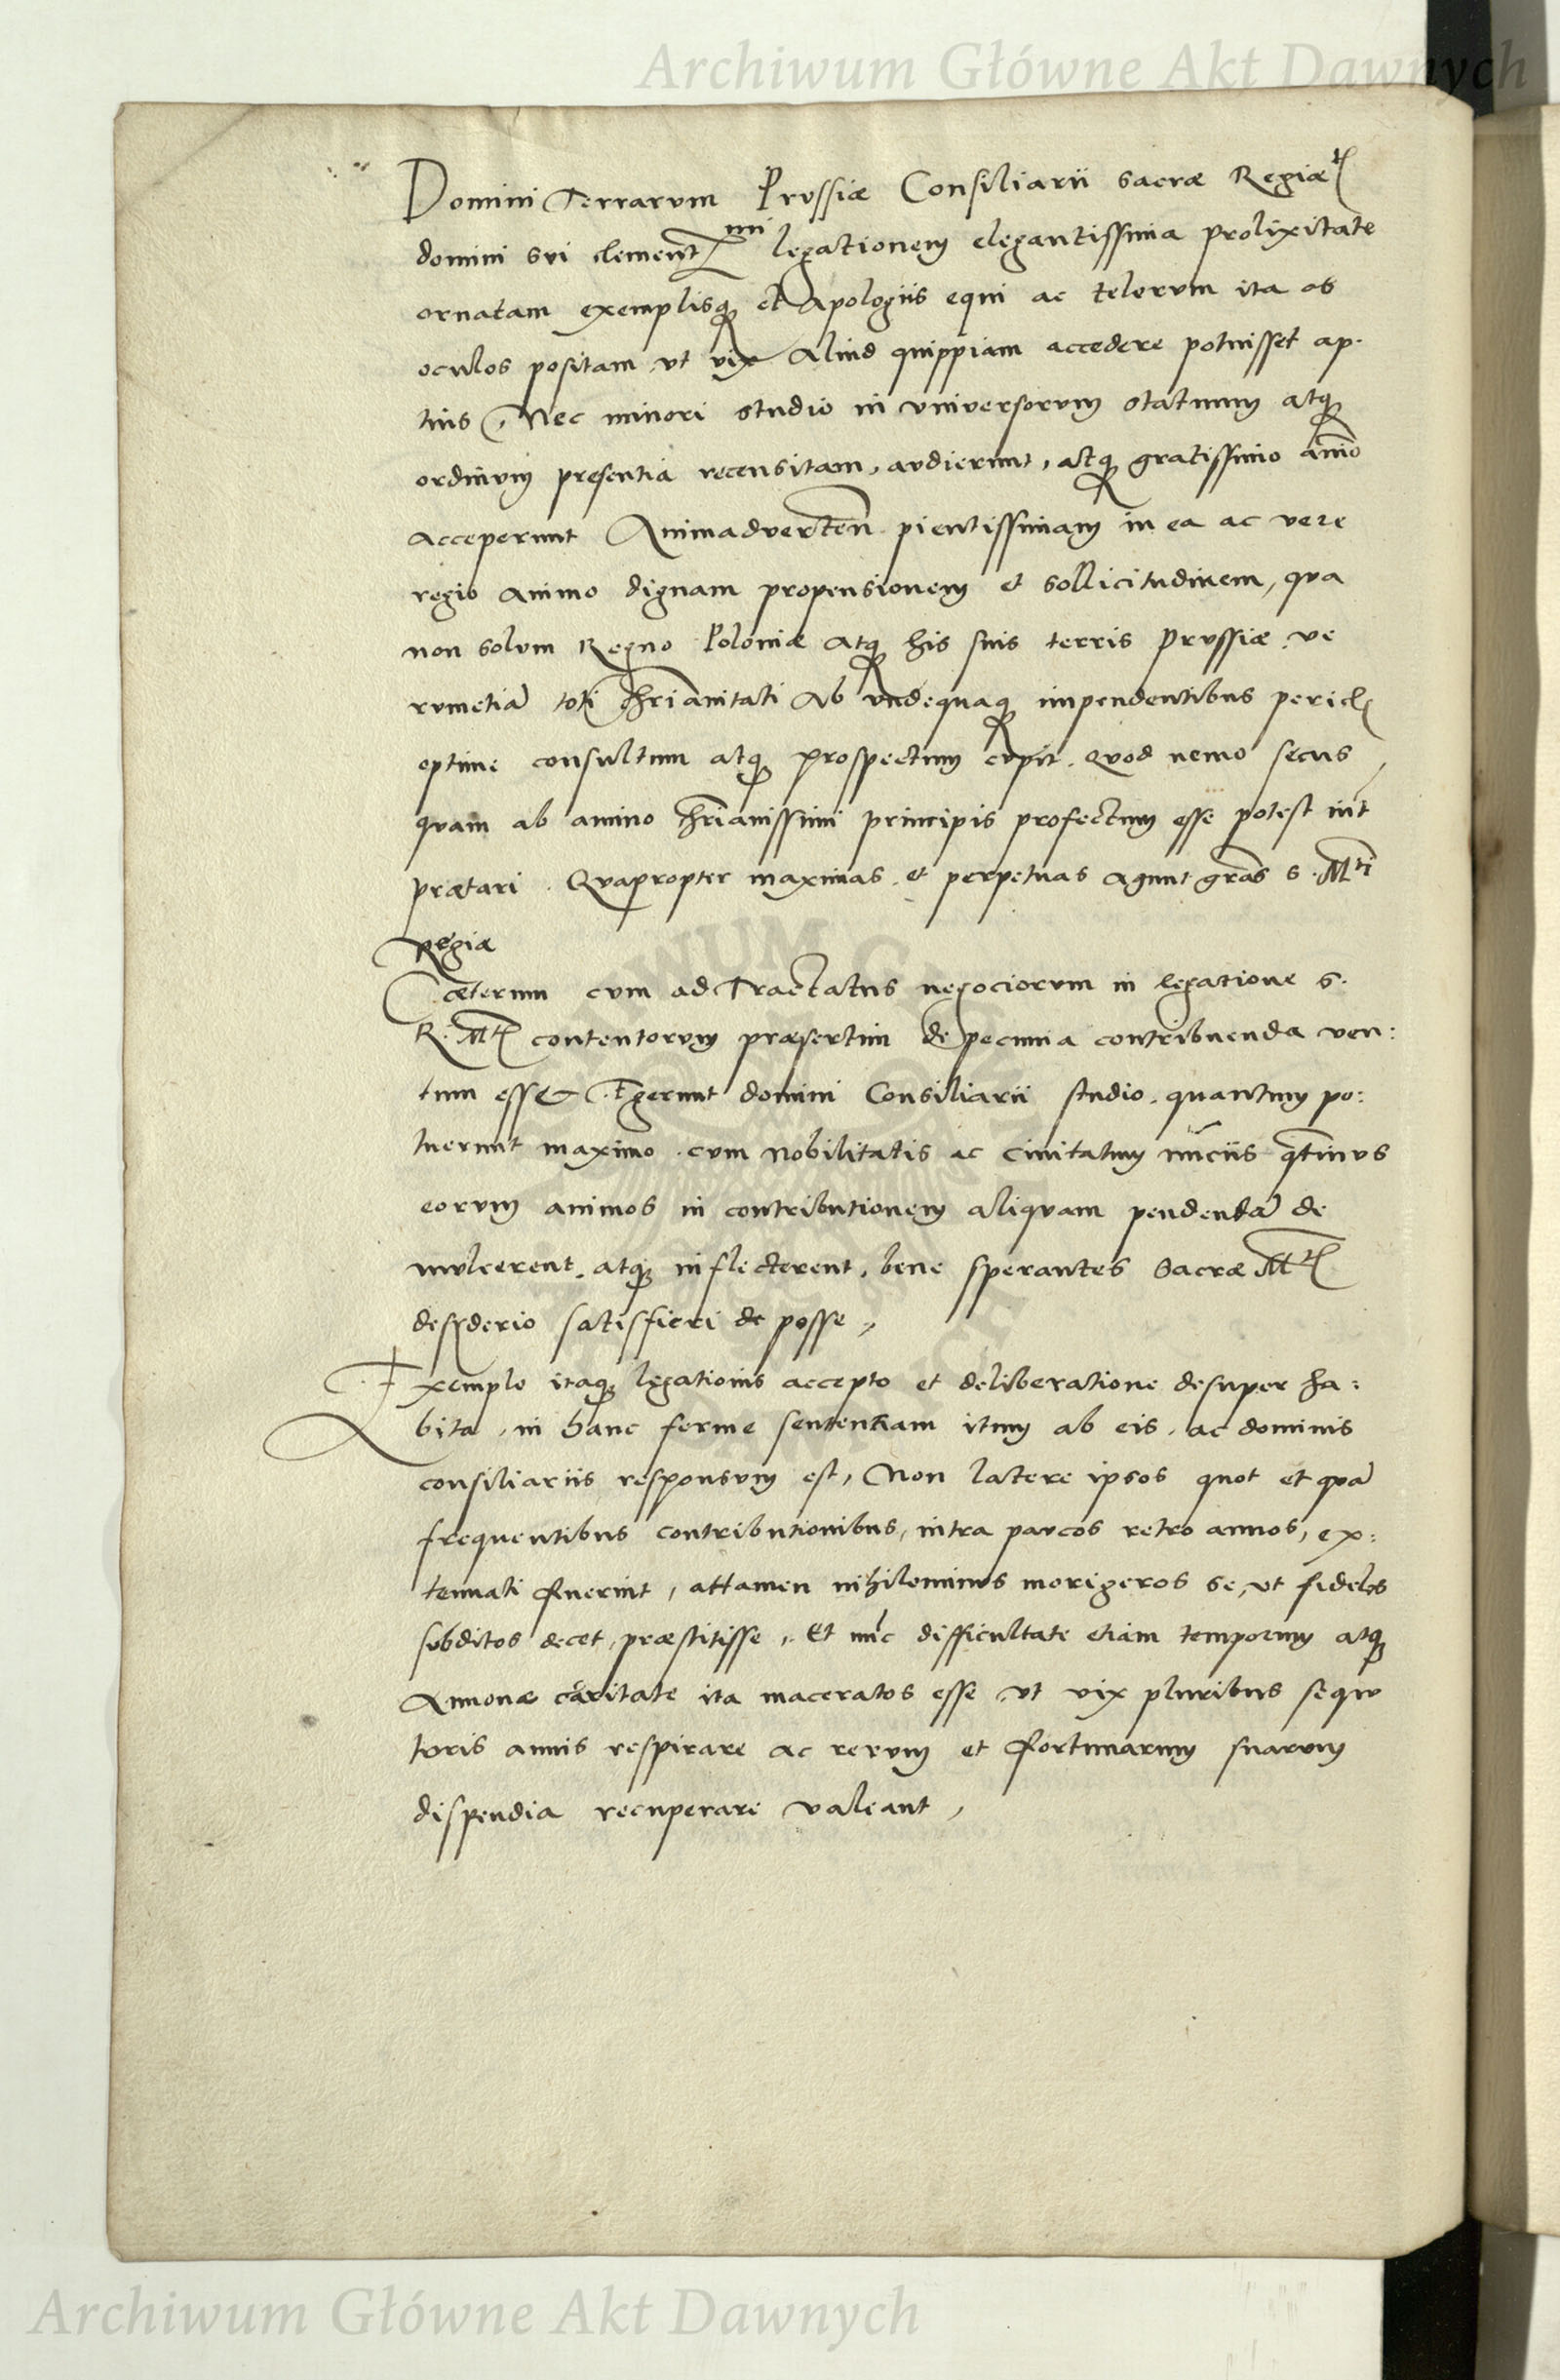 Archiwum Główne Akt Dawnych
Domini Terrarum Prussiæ Consiliarii sacræ Regiæ
domini sui clement mi legationem elegantissima prolixitate
ornatam exemplisq; et Apologiis equi ac telorum ita ob
oculos positam, ut vix Aliud quippiam accedere potuisset ap-
tius, Nec minori studio in universorum statuum atq;
ordinum presentia recensitam, audierunt, atq; gratissimo aīo
acceperunt Animadverten̄ pientissimam in ea ac vere
regio animo dignam propensionem et sollicitudinem, qua
non solum Regno Poloniæ Atq; his suis terris Prussiæ, ve
rumetiā toti Chrianitati Ab undequaq; impendentibus pericl
optime consultum atq; prospectum cupit. Quod nemo secus
quam ab animo Chrianissimi principis profectum esse potest int
prætari. Quapropter maximas et perpetuas agunt grās S. Mti
Regiæ
Cæterum cum ad Tractatus negociorum in legatione S.
R. Mtis contentorum præsertim de pecunia contribuenda ven:
tum esset, Egerunt domini Consiliarii studio, quantum po:
tuerunt maximo, cum nobilitatis ac civitatum nūciis qtinus
eorum animos in contributionem aliquam pendendā de
mulcerent, atq; inflecterent, bene sperantes Sacræ Mtis
desyderio satisfieri de posse,
Exemplo itaq; legationis accepto et deliberatione desuper ha:
bita, in hanc ferme sententiam itum ab eis, ac dominis
consiliariis responsum est, Non latere ipsos quot et quā
frequentibus contributionibus, intra paucos retro annos, ex:
tenuati fuerint, attamen nihilominus morigeros se, ut fideles
subditos decet, præstitisse, Et nūc difficultate etiam temporum atq;
Annonæ caritate ita maceratos esse ut vix pluribus sequ
turis annis respirare ac rerum et fortunarum suarum
dispendia recuperare valeant,
Archiwum Główne Akt Dawnych